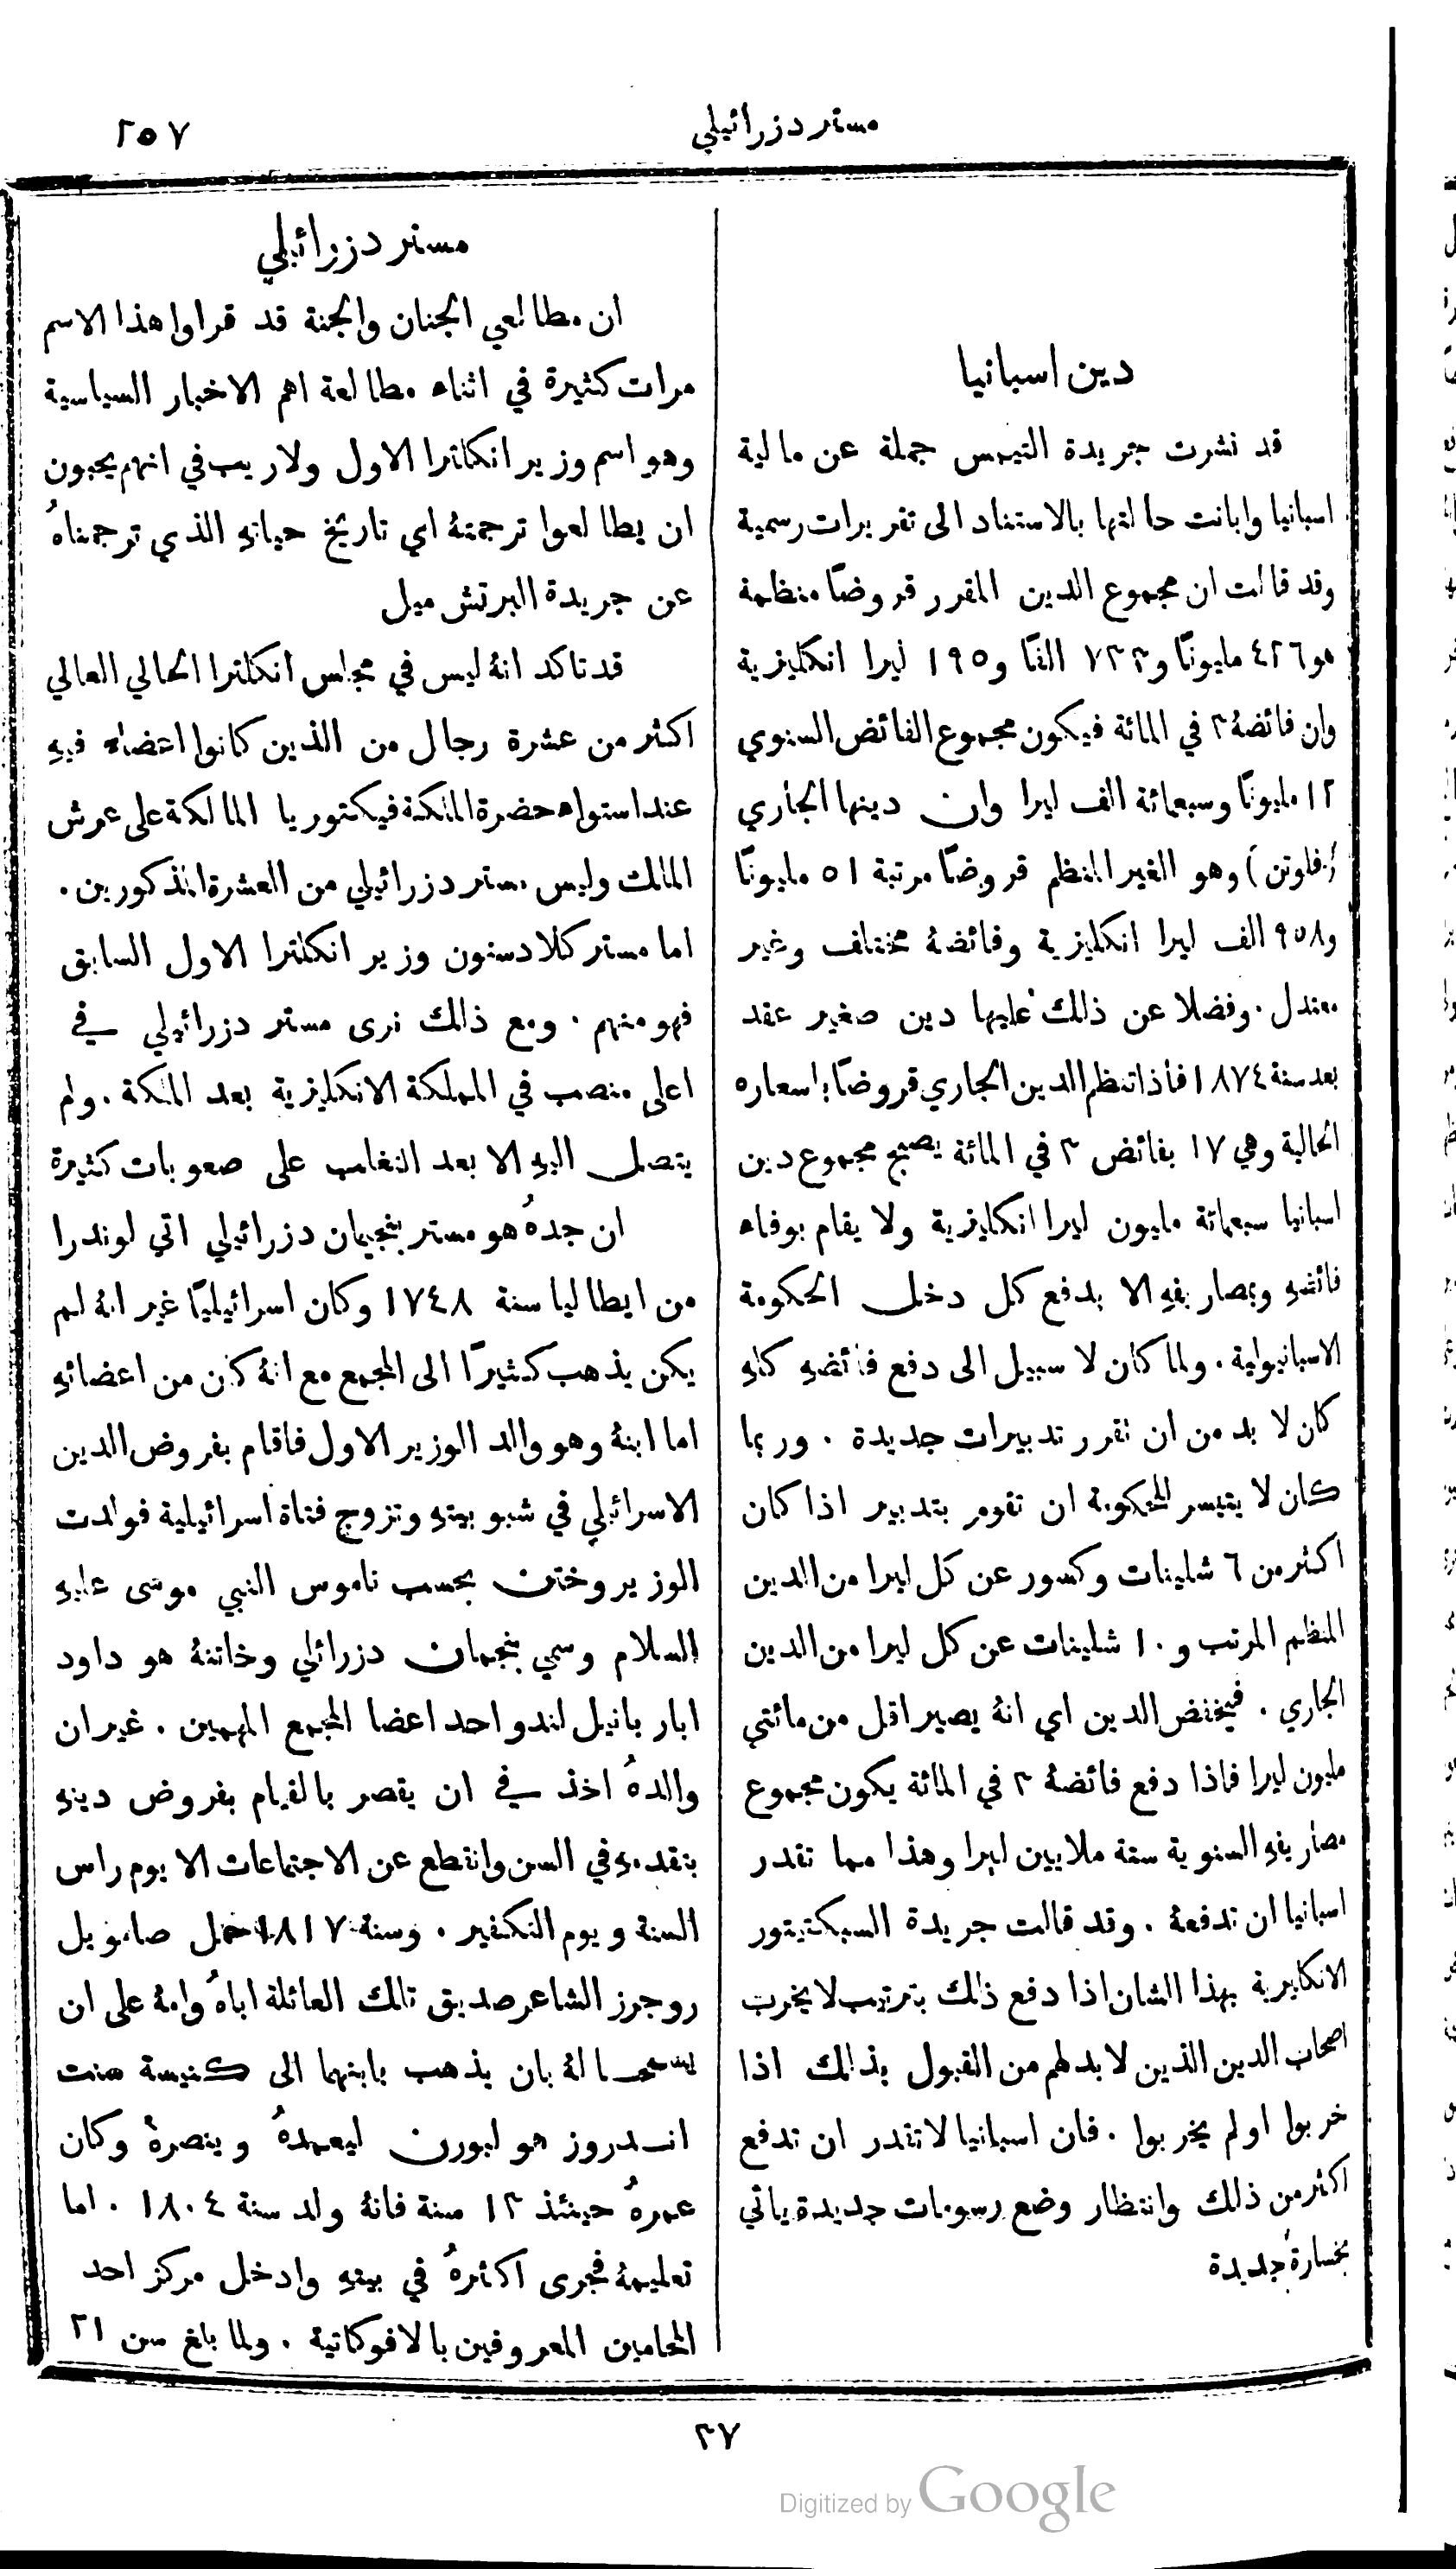 مستر دزرائيلي
٢٥٧
دين اسبانيا
قد نشرت جريدة التيمس جملة عن مالية
اسبانيا وابانت حالتها بالاستناد الى تقريرات رسمية
وقد قالت ان مجموع الدين المقرر قروضًا منظمة
هو ٤٢٦ مليونًا و٧٢٣ الفًا و١٩٥ ليرا انكليزية
وان فائضهُ ٣ في المائة فيكون مجموع الفائض السنوي
١٢ مليونًا وسبعمائة الف ليرا وان دينها الجاري
(فلوتن) وهو الغير المنظم قروضًا مرتبة ٥١ مليونًا
و٩٥٨ الف ليرا انكليزية وفائضهُ مختلف وغير
معتدل. وفضلا عن ذلك عليها دين صغير عقد
بعد سنة ١٨٧٤ فاذا تنظم الدين الجاري قروضًا باسعاره
الحالية وهي ١٧ بفائض ٣ في المائة يصبح مجموع دين
اسبانيا سبعمائة مليون ليرا انكليزية ولا يقام بوفاء
فائضهِ وبمصاريفهِ الا بدفع كل دخل الحكومة
الاسبانيولية. ولما كان لا سبيل الى دفع فائضهِ كلهِ
كان لا بد من ان تقرر تدبيرات جديدة. وربما
كان لا يتيسر للحكومة ان تقوم بتدبير اذا كان
اكثر من ٦ شلينات وكسور عن كل ليرا من الدين
المنظم المرتب و١٠ شلينات عن كل ليرا من الدين
الجاري. فيخفض الدين اي انهُ يصير اقل من مائتي
مليون ليرا فاذا دفع فائضهُ ٣ في المائة يكون مجموع
مصاريفهِ السنوية ستة ملايين ليرا وهذا مما تقدر
اسبانيا ان تدفعهُ. وقد قالت جريدة السبكتيتور
الانكليزية بهذا الشان اذا دفع ذلك بترتيب لا يخرب
اصحاب الدين الذين لا بد لهم من القبول بذلك اذا
خربوا او لم يخربوا. فان اسبانيا لا تقدر ان تدفع
اكثر من ذلك وانتظار وضع رسومات جديدة ياتي
بخسارة جديدة
مستر دزرائيلي
ان مطالعي الجنان والجنة قد قراوا هذا الاسم
مرات كثيرة في اثناء مطالعة اهم الاخبار السياسية
وهو اسم وزير انكلترا الاول ولا ريب في انهم يحبون
ان يطالعوا ترجمتهُ اي تاريخ حياتهِ الذي ترجمناهُ
عن جريدة البرتش ميل
قد تاكد انهُ ليس في مجلس انكلترا الحالي العالي
اكثر من عشرة رجال من الذين كانوا اعضاء فيهِ
عند استواء حضرة الملكة فيكتوريا المالكة على عرش
الملك وليس مستر دزرائيلي من العشرة المذكورين.
اما مستر كلادستون وزير انكلترا الاول السابق
فهو منهم. ومع ذلك نرى مستر دزرائيلي في
اعلى منصب في المملكة الانكليزية بعد الملكة. ولم
يتصل اليهِ الا بعد التغلب على صعوبات كثيرة
ان جدهُ هو مستر بنجيمان دزرائيلي اتي لوندرا
من ايطاليا سنة ١٧٤٨ وكان اسرائيليًا غير انهُ لم
يكن يذهب كثيرًا الى المجمع مع انهُ كان من اعضائهِ
اما ابنهُ وهو والد الوزير الاول فاقام بفروض الدين
الاسرائيلي في شبوبيتهِ وتزوج فتاة اسرائيلية فولدت
الوزير وختن بحسب ناموس النبي موسى عليهِ
السلام وسمي بنجمان دزرائلي وخاتنهُ هو داود
ابار بانيل لندو احد اعضا المجمع المهمين. غير ان
والدهُ اخذ في ان يقصر بالقيام بفروض دينهِ
بتقدمهِ في السن وانقطع عن الاجتماعات الا يوم راس
السنة ويوم التكفير. وسنة ١٨١٧ حمل صاموييل
روجرز الشاعر صديق تلك العائلة اباهُ وامهُ على ان
يسمحا لهُ بان يذهب بابنهما الى كنيسة سنت
اندروز هولبورن ليعمدهُ وينصرهُ وكان
عمرهُ حينئذ ١٣ سنة فانهُ ولد سنة ١٨٠٤. اما
تعليمهُ فجرى اكثرهُ في بيتهِ وادخل مركز احد
المحامين المعروفين بالافوكاتية. ولما بلغ سن ٢١
٣٧
Digitized by Google